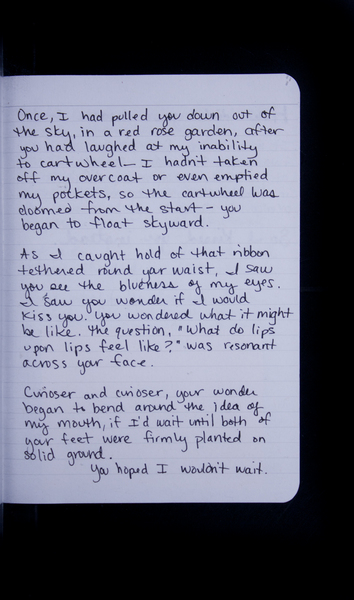 Once, I had pulled you down out of
the sky, in a red rose garden, after
you had laughed at my inability
to cartwheel— I hadn't taken
off my overcoat or even emptied
my pockets, so the cartwheel was
doomed from the start – you
began to float skyward.
As I caught hold of that ribbon
tethered round your waist, I saw
you see the blueness of my eyes.
I saw you wonder if I would
kiss you. You wondered what it might
be like. The question, "What do lips
upon lips feel like?" was resonant
across your face.
Curioser and curioser, your wonder
began to bend around the idea of
my mouth, if I'd wait until both of
your feet were firmly planted on
solid ground.
You hoped I wouldn't wait.